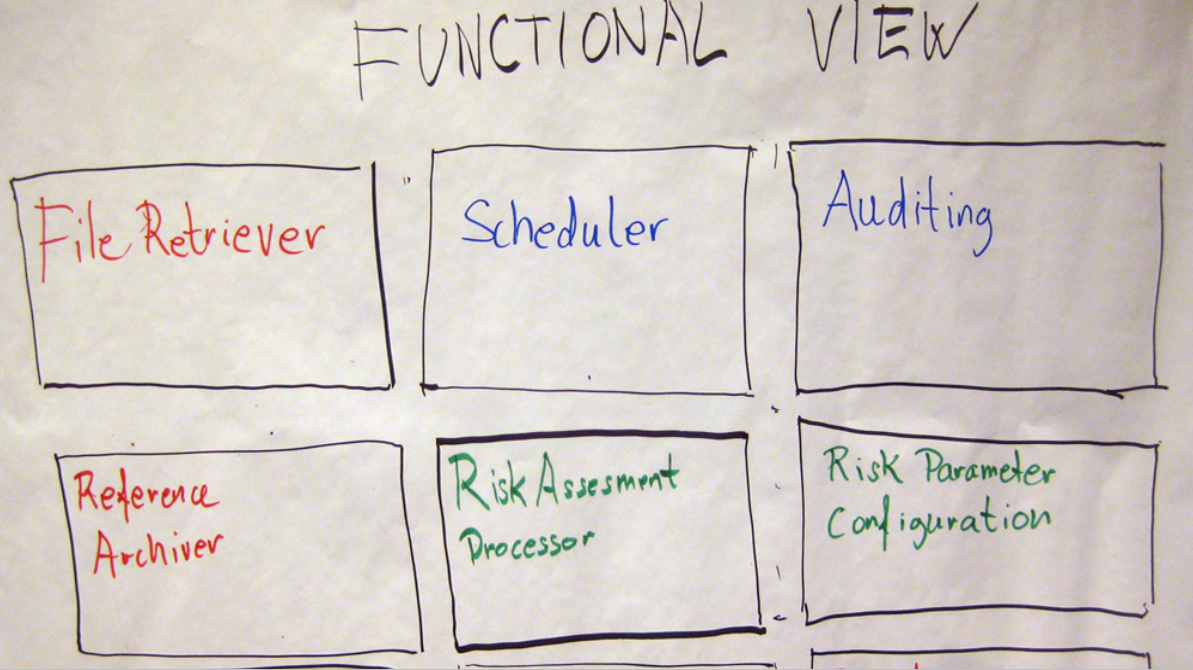 FUNCTIONAL VIEW
File Retriever
Scheduler
Auditing
Reference
Archiver
Risk Assesment
Processor
Risk Parameter
Configuration